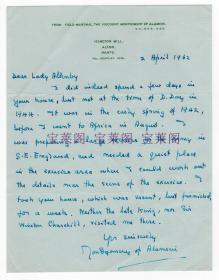 FROM FIELD-MARSHAL THE VISCOUNT MONTGOMERY OF ALAMEIN
ISINGTON MILL,
ALTON,
HANTS.
2 April 1962
Dear Lady Allenby
I did indeed spend a few days in
your house, but not at the time of D. Day in
1944. It was in the early spring of 1942,
before I went to Africa in August. I
was
S.E. England, and needed a quiet place
in the exercise area where I could work out
the details near the scene of the exercise. I
took your house, which was vacant, but furnished,
for a week. Neither the late King, nor Sir
Winston Churchill, visited me there.
Yrs sincerely
Montgomery of Alamein
宝莱阁 宝莱阁 宝莱阁